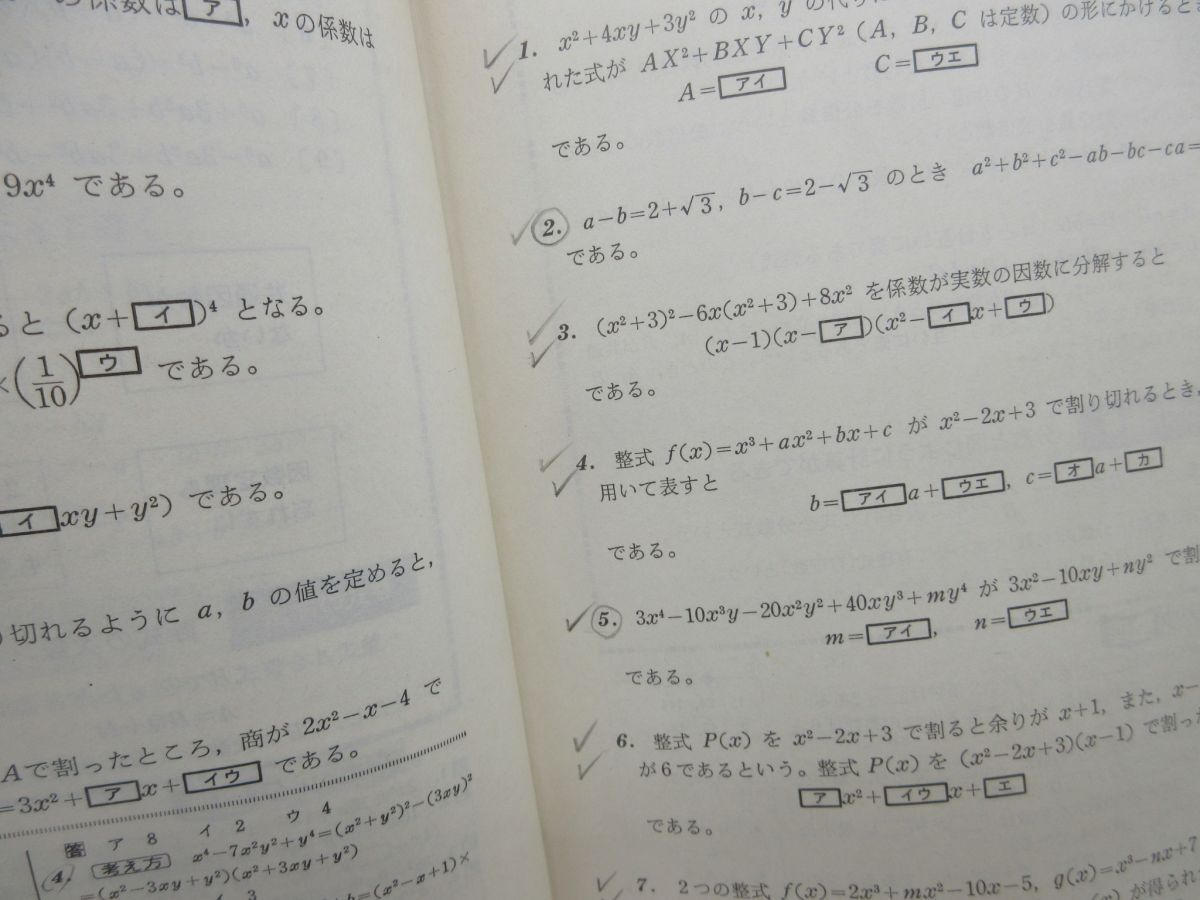 の係数は ア , xの係数は
9x⁴ である。
ると (x+ イ )⁴ となる。
×(1/10) ウ である。
イ xy+y²) である。
り切れるように a, b の値を定めると,
Aで割ったところ, 商が 2x²−x−4 で
=3x²+ ア x+ イウ である。
答 ア 8 イ 2 ウ 4
(4) 考え方 x⁴−7x²y²+y⁴=(x²+y²)²−(3xy)²
=(x²−3xy+y²)(x²+3xy+y²)
イ 3
b=(x²−x+1)×
1. x²+4xy+3y² の x, y の代りに
れた式が AX²+BXY+CY² (A, B, C は定数) の形にかけるとき
A= アイ C= ウエ
である。
2. a−b=2+√3, b−c=2−√3 のとき a²+b²+c²−ab−bc−ca=
である。
3. (x²+3)²−6x(x²+3)+8x² を係数が実数の因数に分解すると
(x−1)(x− ア )(x²− イ x+ ウ )
である。
4. 整式 f(x)=x³+ax²+bx+c が x²−2x+3 で割り切れるとき,
用いて表すと
b= アイ a+ ウエ , c= オ a+ カ
である。
5. 3x⁴−10x³y−20x²y²+40xy³+my⁴ が 3x²−10xy+ny² で割
m= アイ , n= ウエ
である。
6. 整式 P(x) を x²−2x+3 で割ると余りが x+1, また, x−
が6であるという。整式 P(x) を (x²−2x+3)(x−1) で割っ
ア x²+ イウ x+ エ
である。
7. 2つの整式 f(x)=2x³+mx²−10x−5, g(x)=x³−nx+7
が得られ